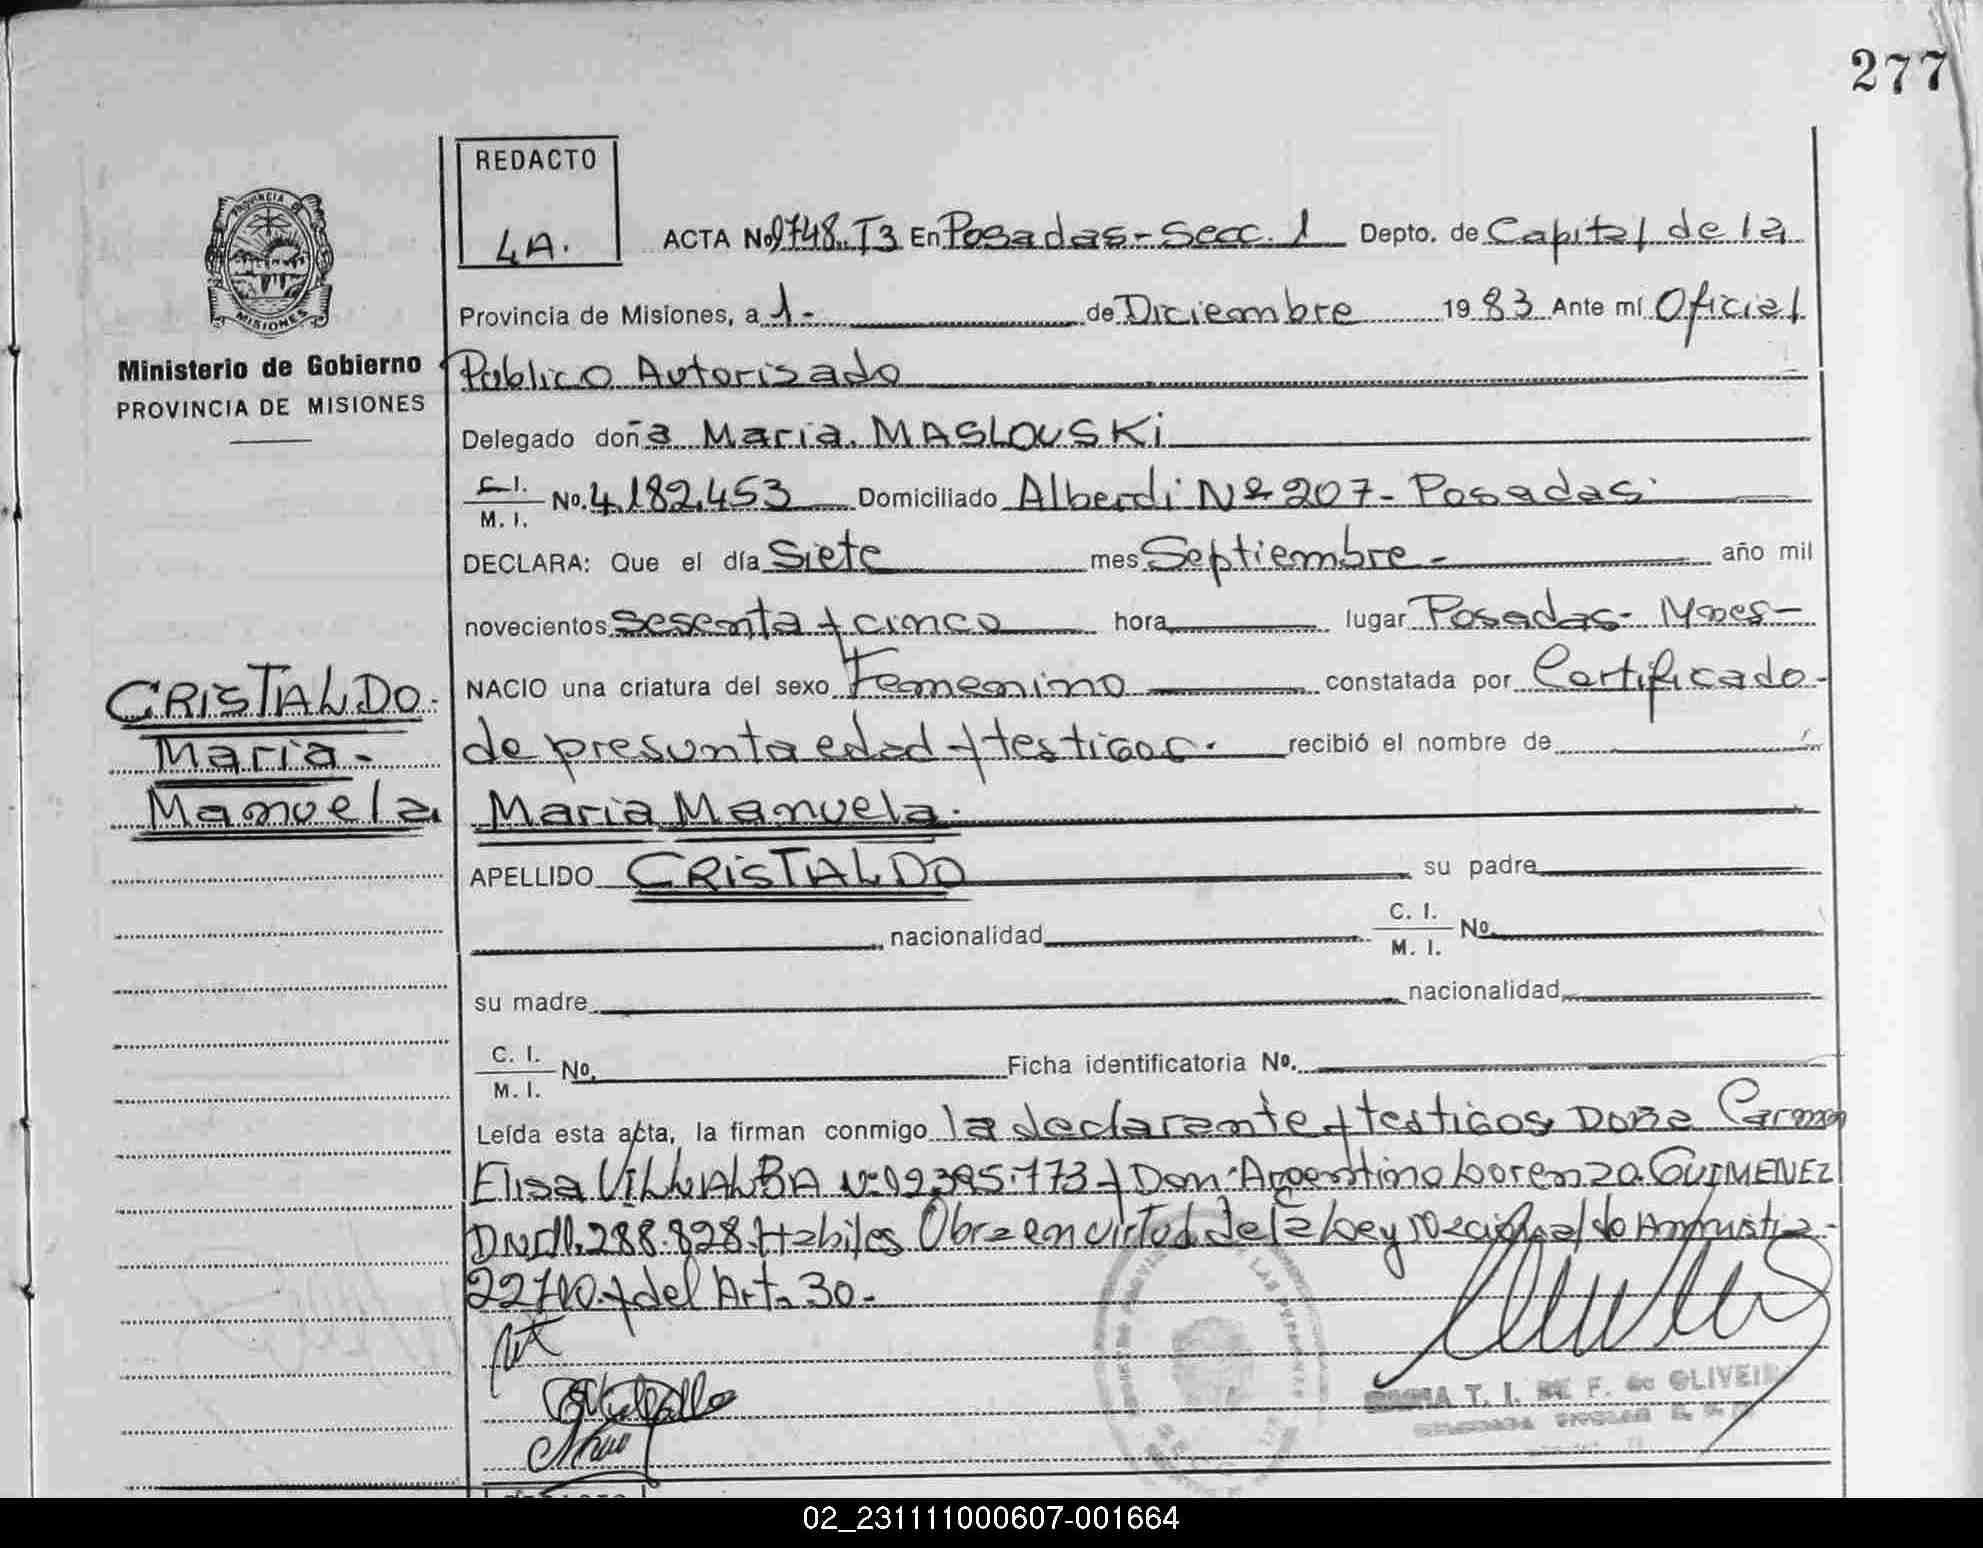 277
REDACTO
4A.
ACTA No 9748..T3 En Posadas-Secc. 1 Depto. de Capital de la
PROVINCIA DE
MISIONES
Provincia de Misiones, a 1- de Diciembre 1983 Ante mí Oficial
Ministerio de Gobierno
PROVINCIA DE MISIONES
Público Autorizado
Delegado doña Maria. MASLOUSKi
C. I. / M. I. No. 4.182.453 Domiciliado Alberdi Nº 207- Posadas
DECLARA: Que el día Siete mes Septiembre- año mil
novecientos Sesenta y cinco hora lugar Posadas- Mnes-
NACIO una criatura del sexo Femenino constatada por Certificado-
CRISTALDO.
Maria-
Manuela
de presunta edad y testigos. recibió el nombre de
Maria Manuela.
APELLIDO CRISTALDO su padre
nacionalidad C. I. / M. I. No.
su madre nacionalidad
C. I. / M. I. No. Ficha identificatoria No.
Leída esta acta, la firman conmigo la declarante y testigos Doña Carmen
Elisa VILLALBA y Don Argentino Lorenzo GUIMENEZ
288.828 Habiles Obra en virtud de la Ley Nacional de Amnistia-
y del Art. 30-
T. I. DE F. de OLIVEI
02_231111000607-001664